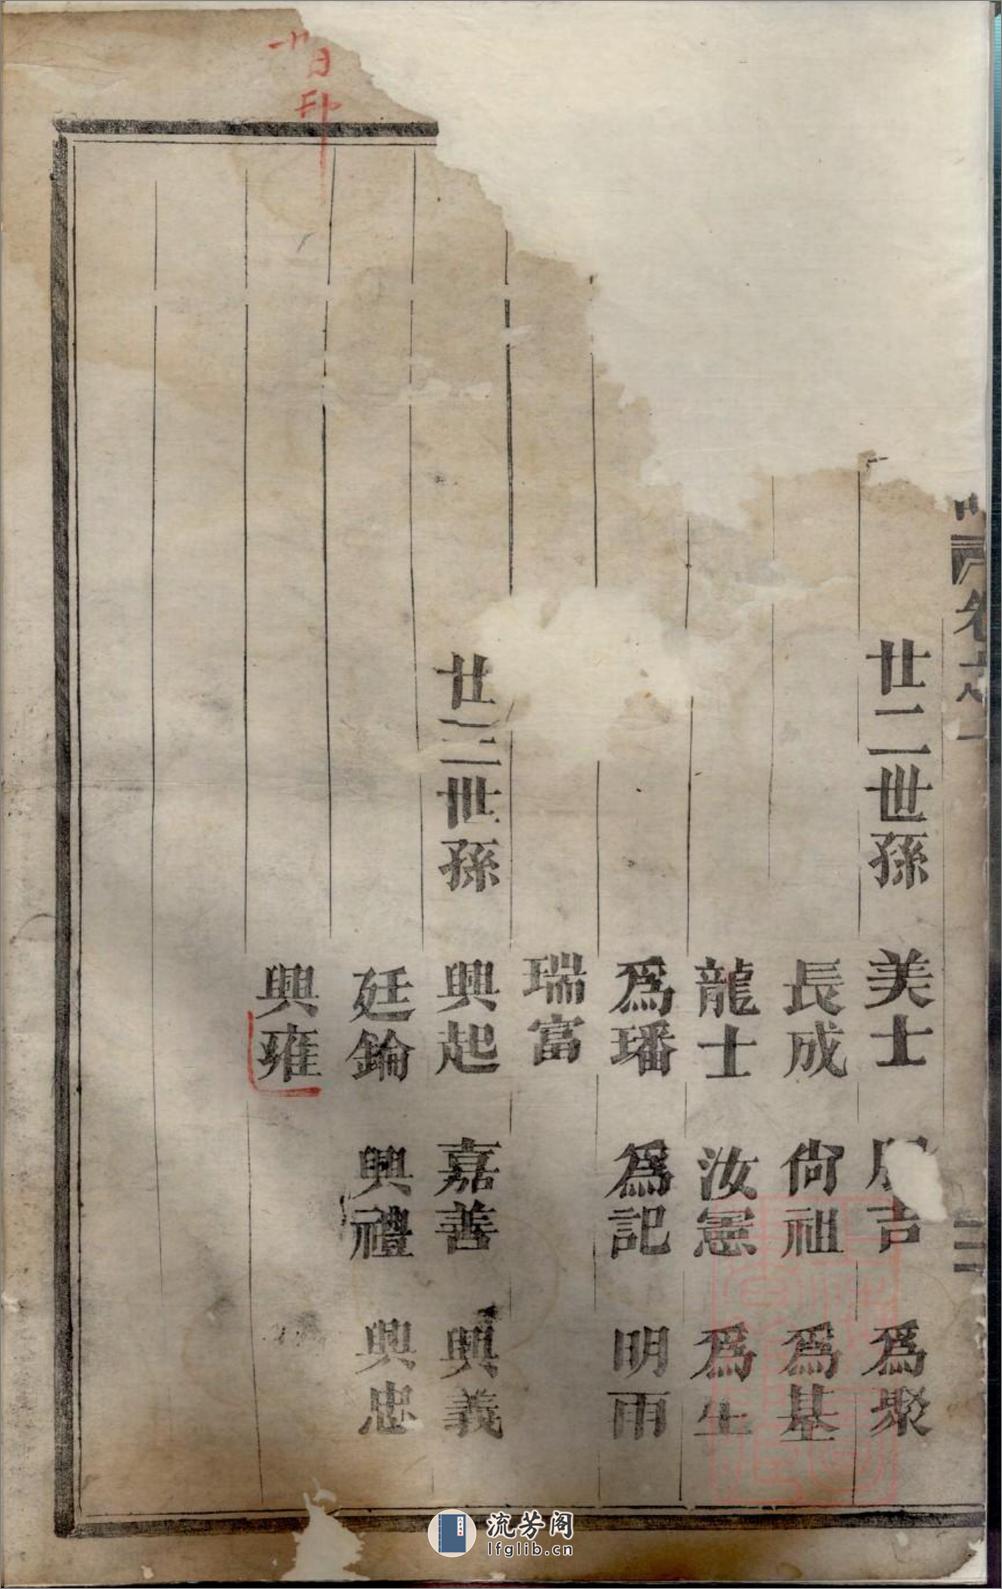 廿二世孫 美士 声 為聚
長成 尙祖 為基
龍士 汝憲 為生
為璠 為記 明雨
瑞富
廿三世孫 興起 嘉善 興義
廷錀 興禮 興忠
興雍
日印
卷之一
流芳阁
lfglib.cn